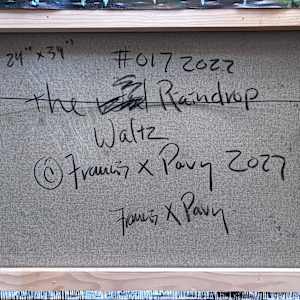 24" x 34"
#017 2022
The Raindrop
Waltz
© Francis X Pavy 2022
Francis X Pavy